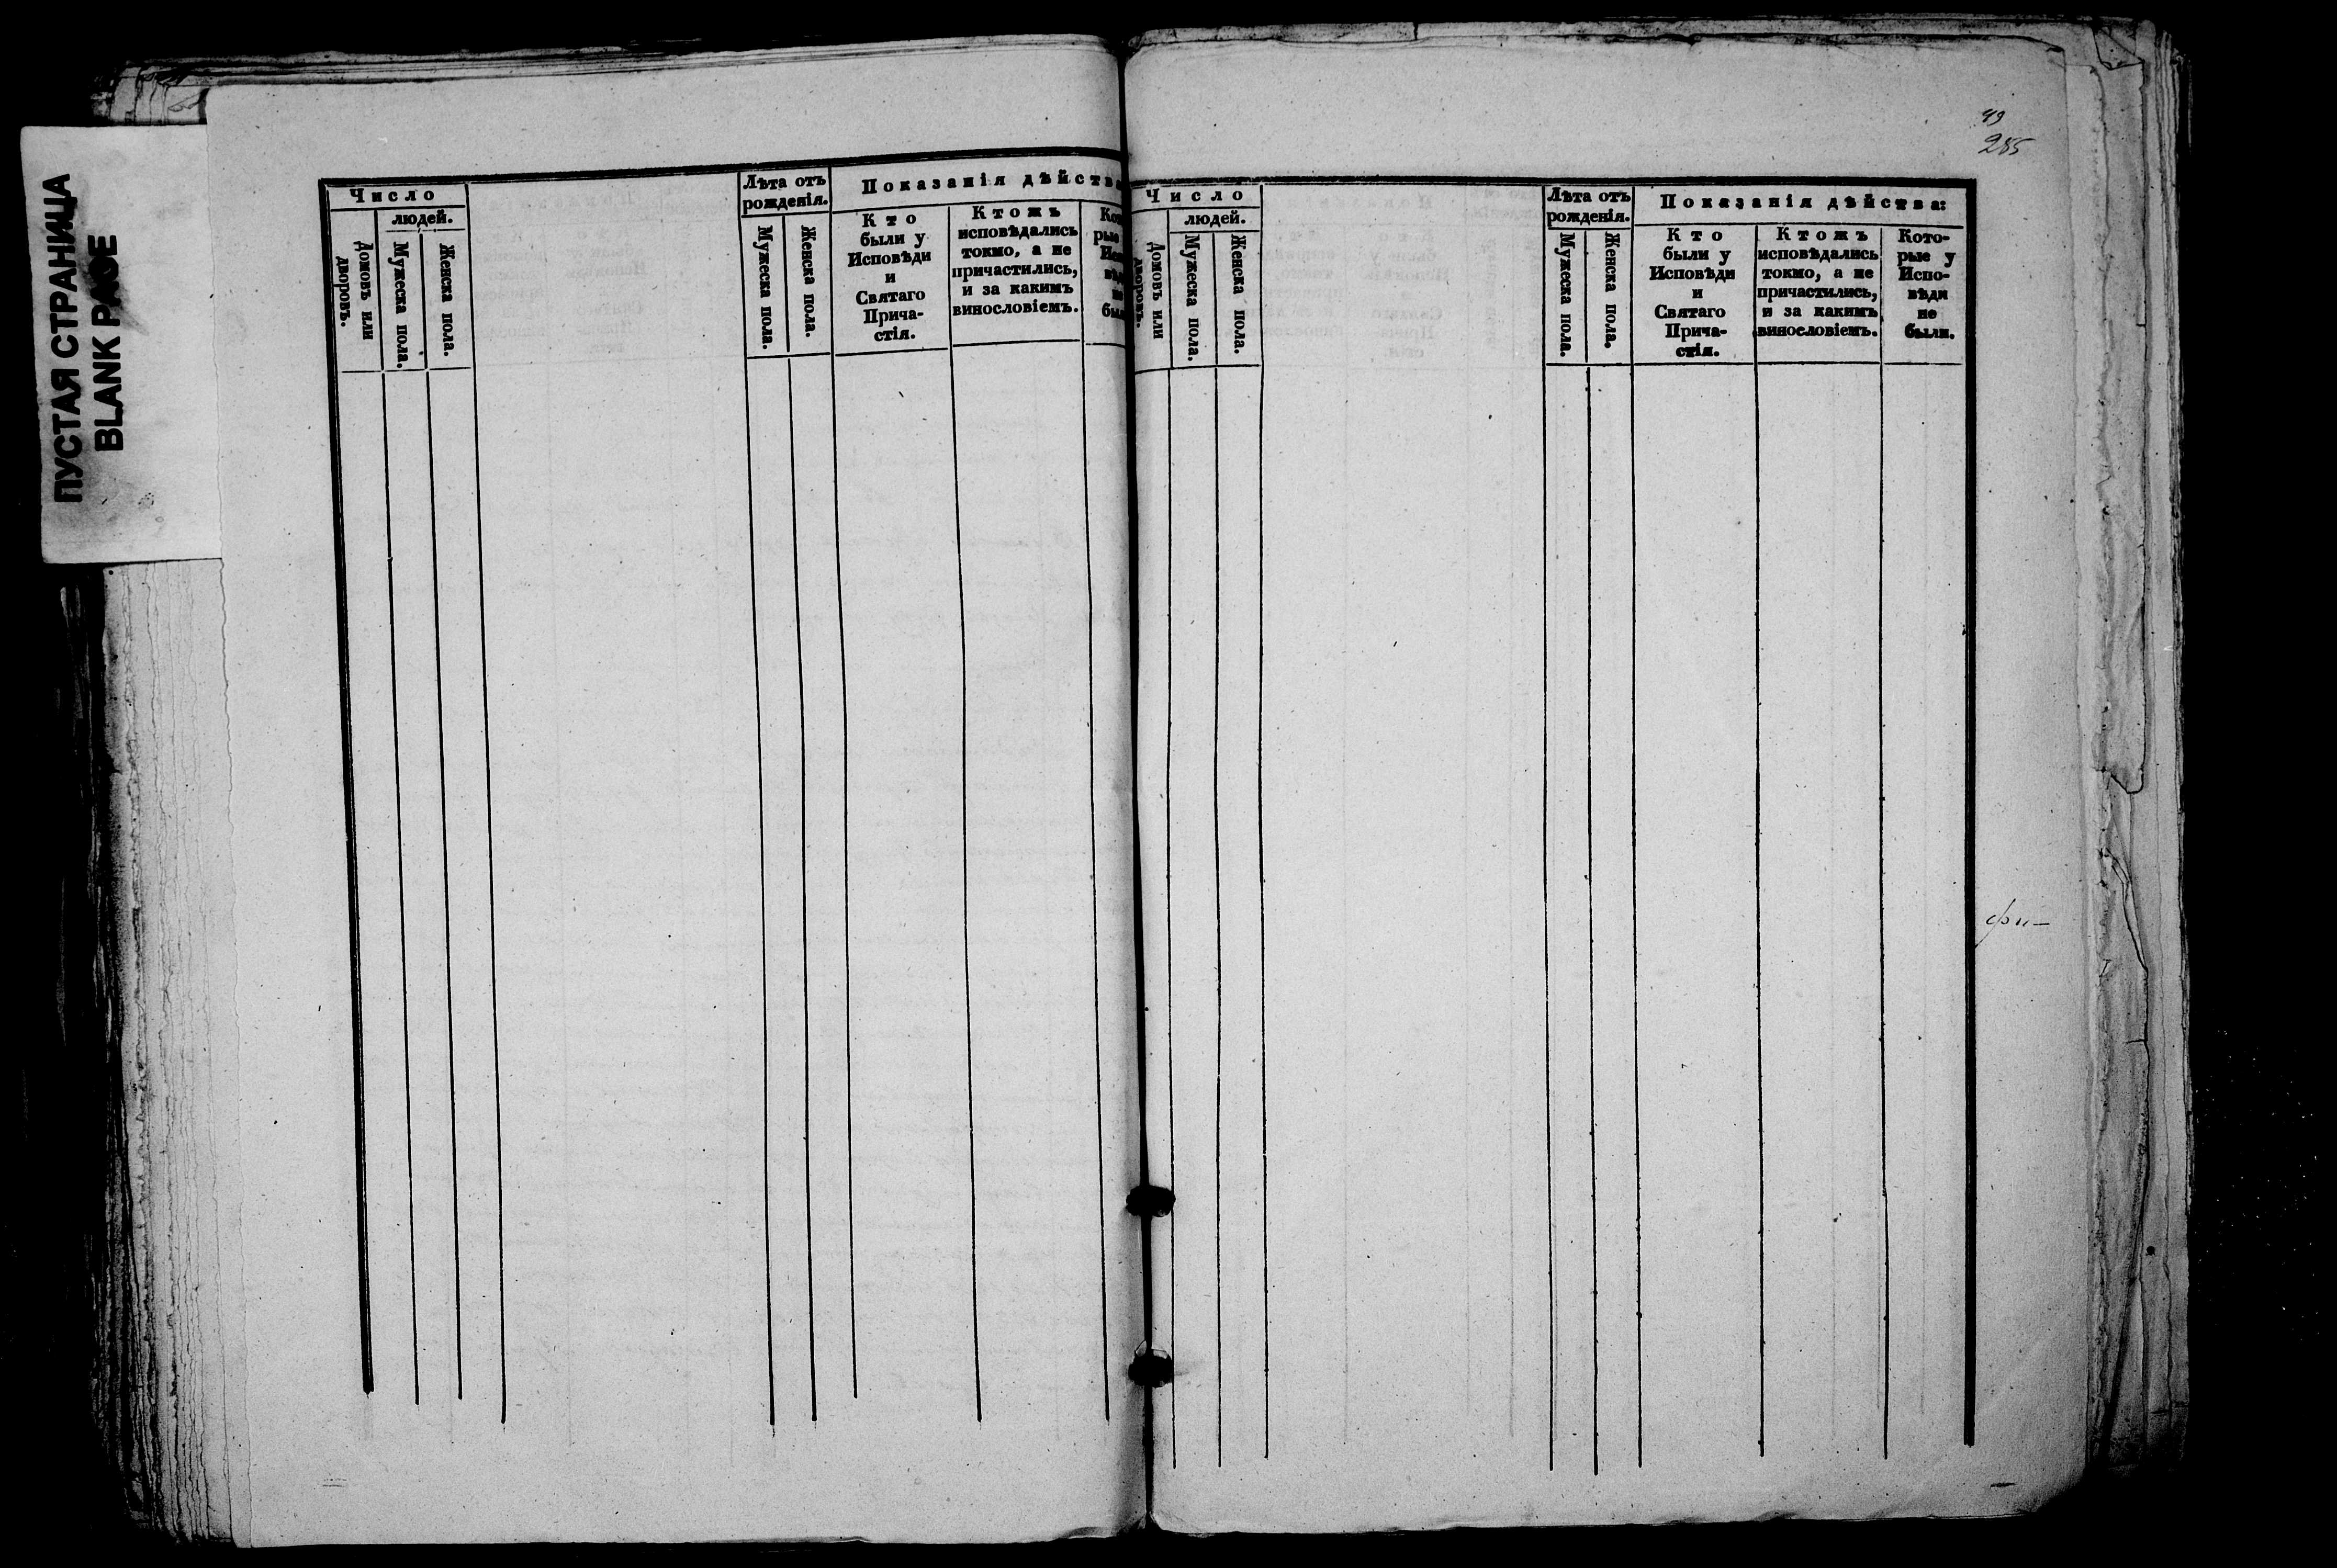 ПУСТАЯ СТРАНИЦА
BLANK PAGE
Число
людей.
Домовъ или
дворовъ.
Мужеска пола.
Женска пола.
Лѣта отъ
рожденія.
Мужеска пола.
Женска пола.
Показанія дѣйства
Кто
были у
Исповѣди
и
Святаго
Прича-
стія.
Ктожъ
исповѣдались
токмо, а не
причастились,
и за какимъ
винословіемъ.
рые
Число
людей.
Домовъ или
дворовъ.
Мужеска пола.
Женска пола.
Лѣта отъ
рожденія.
Мужеска пола.
Женска пола.
Показанія дѣйства:
Кто
были у
Исповѣди
и
Святаго
Прича-
стія.
Ктожъ
исповѣдались
токмо, а не
причастились,
и за какимъ
винословіемъ.
Кото-
рые у
Испо-
вѣди
не
были.
49
285